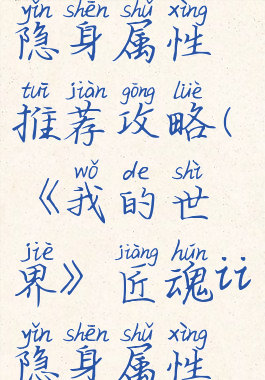 yǐn shēn shǔ xìng
隐身属性
tuī jiàn gōng lüè
推荐攻略(
wǒ de shì
《我的世
jiè jiàng hún
界》 匠魂ii
yǐn shēn shǔ xìng
隐身属性